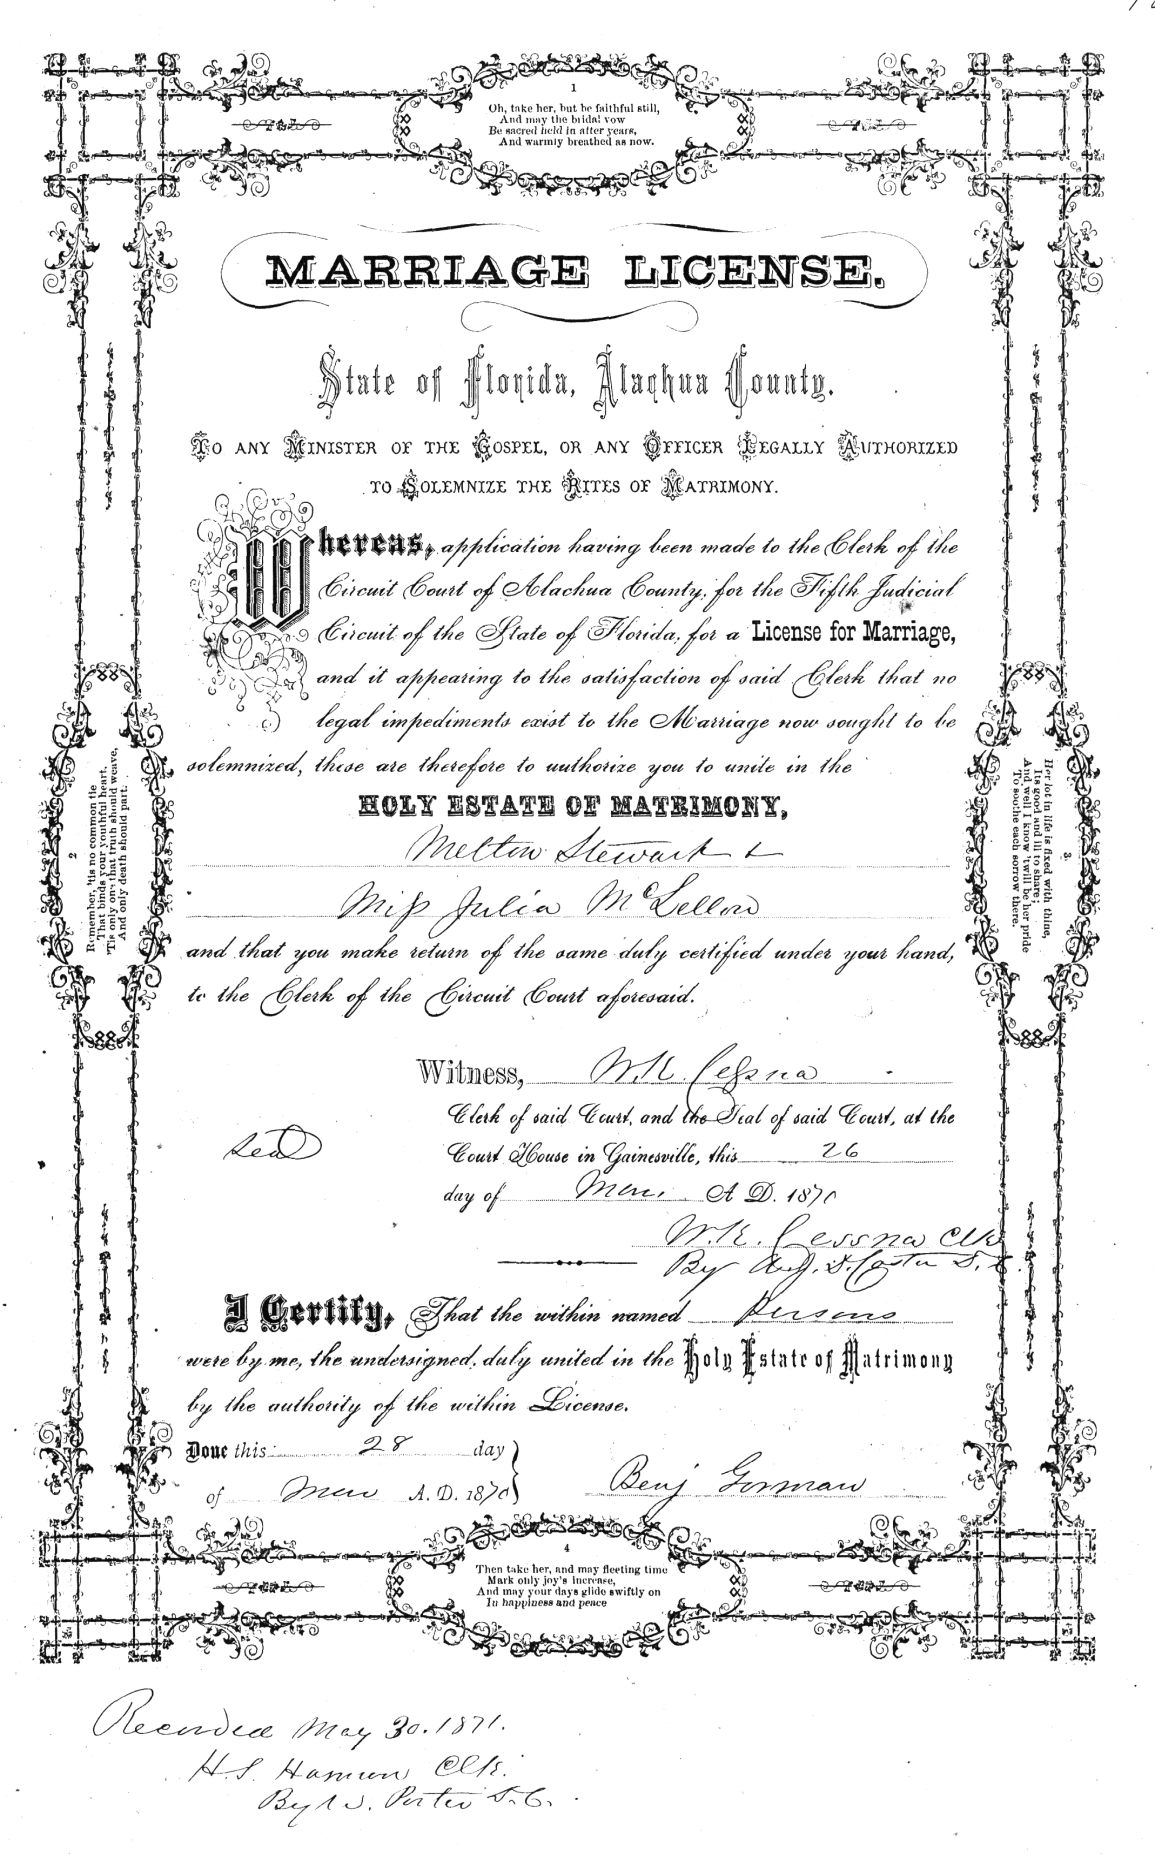 1
Oh, take her, but be faithful still,
And may the bridal vow
Be sacred held in after years,
And warmly breathed as now.
MARRIAGE LICENSE.
State of Florida, Alachua County.
TO ANY MINISTER OF THE GOSPEL, OR ANY OFFICER LEGALLY AUTHORIZED
TO SOLEMNIZE THE RITES OF MATRIMONY.
Whereas, application having been made to the Clerk of the
Circuit Court of Alachua County, for the Fifth Judicial
Circuit of the State of Florida, for a License for Marriage,
and it appearing to the satisfaction of said Clerk that no
legal impediments exist to the Marriage now sought to be
solemnized, these are therefore to authorize you to unite in the
HOLY ESTATE OF MATRIMONY,
Melton Stewart &
Miss Julia McLellon
and that you make return of the same duly certified under your hand,
to the Clerk of the Circuit Court aforesaid.
2
Remember, 'tis no common tie
That binds your youthful heart,
'Tis only one that truth should weave,
And only death should part.
3.
Her lot in life is fixed with thine,
Its good and ill to share;
And well I know 'twill be her pride
To soothe each sorrow there.
Witness, W.K. Cessna
Clerk of said Court, and the Seal of said Court, at the
Seal
Court House in Gainesville, this 26
day of A. D. 1870
W.K. Cessna Clk
By
I Certify, That the within named Persons
were by me, the undersigned, duly united in the Holy Estate of Matrimony
by the authority of the within License.
Done this 28 day
of A. D. 1870
Benj Gorman
4
Then take her, and may fleeting time
Mark only joy's increase,
And may your days glide swiftly on
In happiness and peace
Recorded May 30. 1871.
H.S. Harmon Clk.
By Porter D.C.